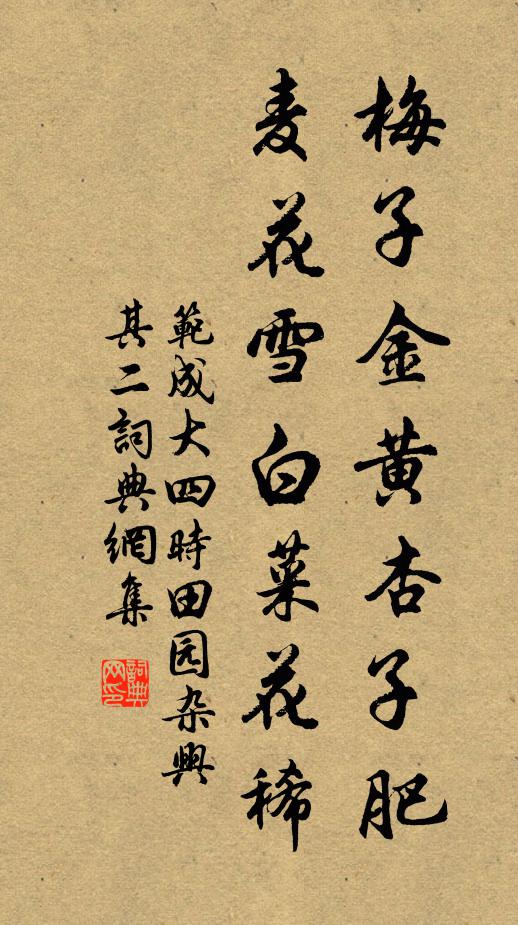 梅子金黄杏子肥
麦花雪白菜花稀
範成大四時田园杂興
其二詞典網集
詞典网印